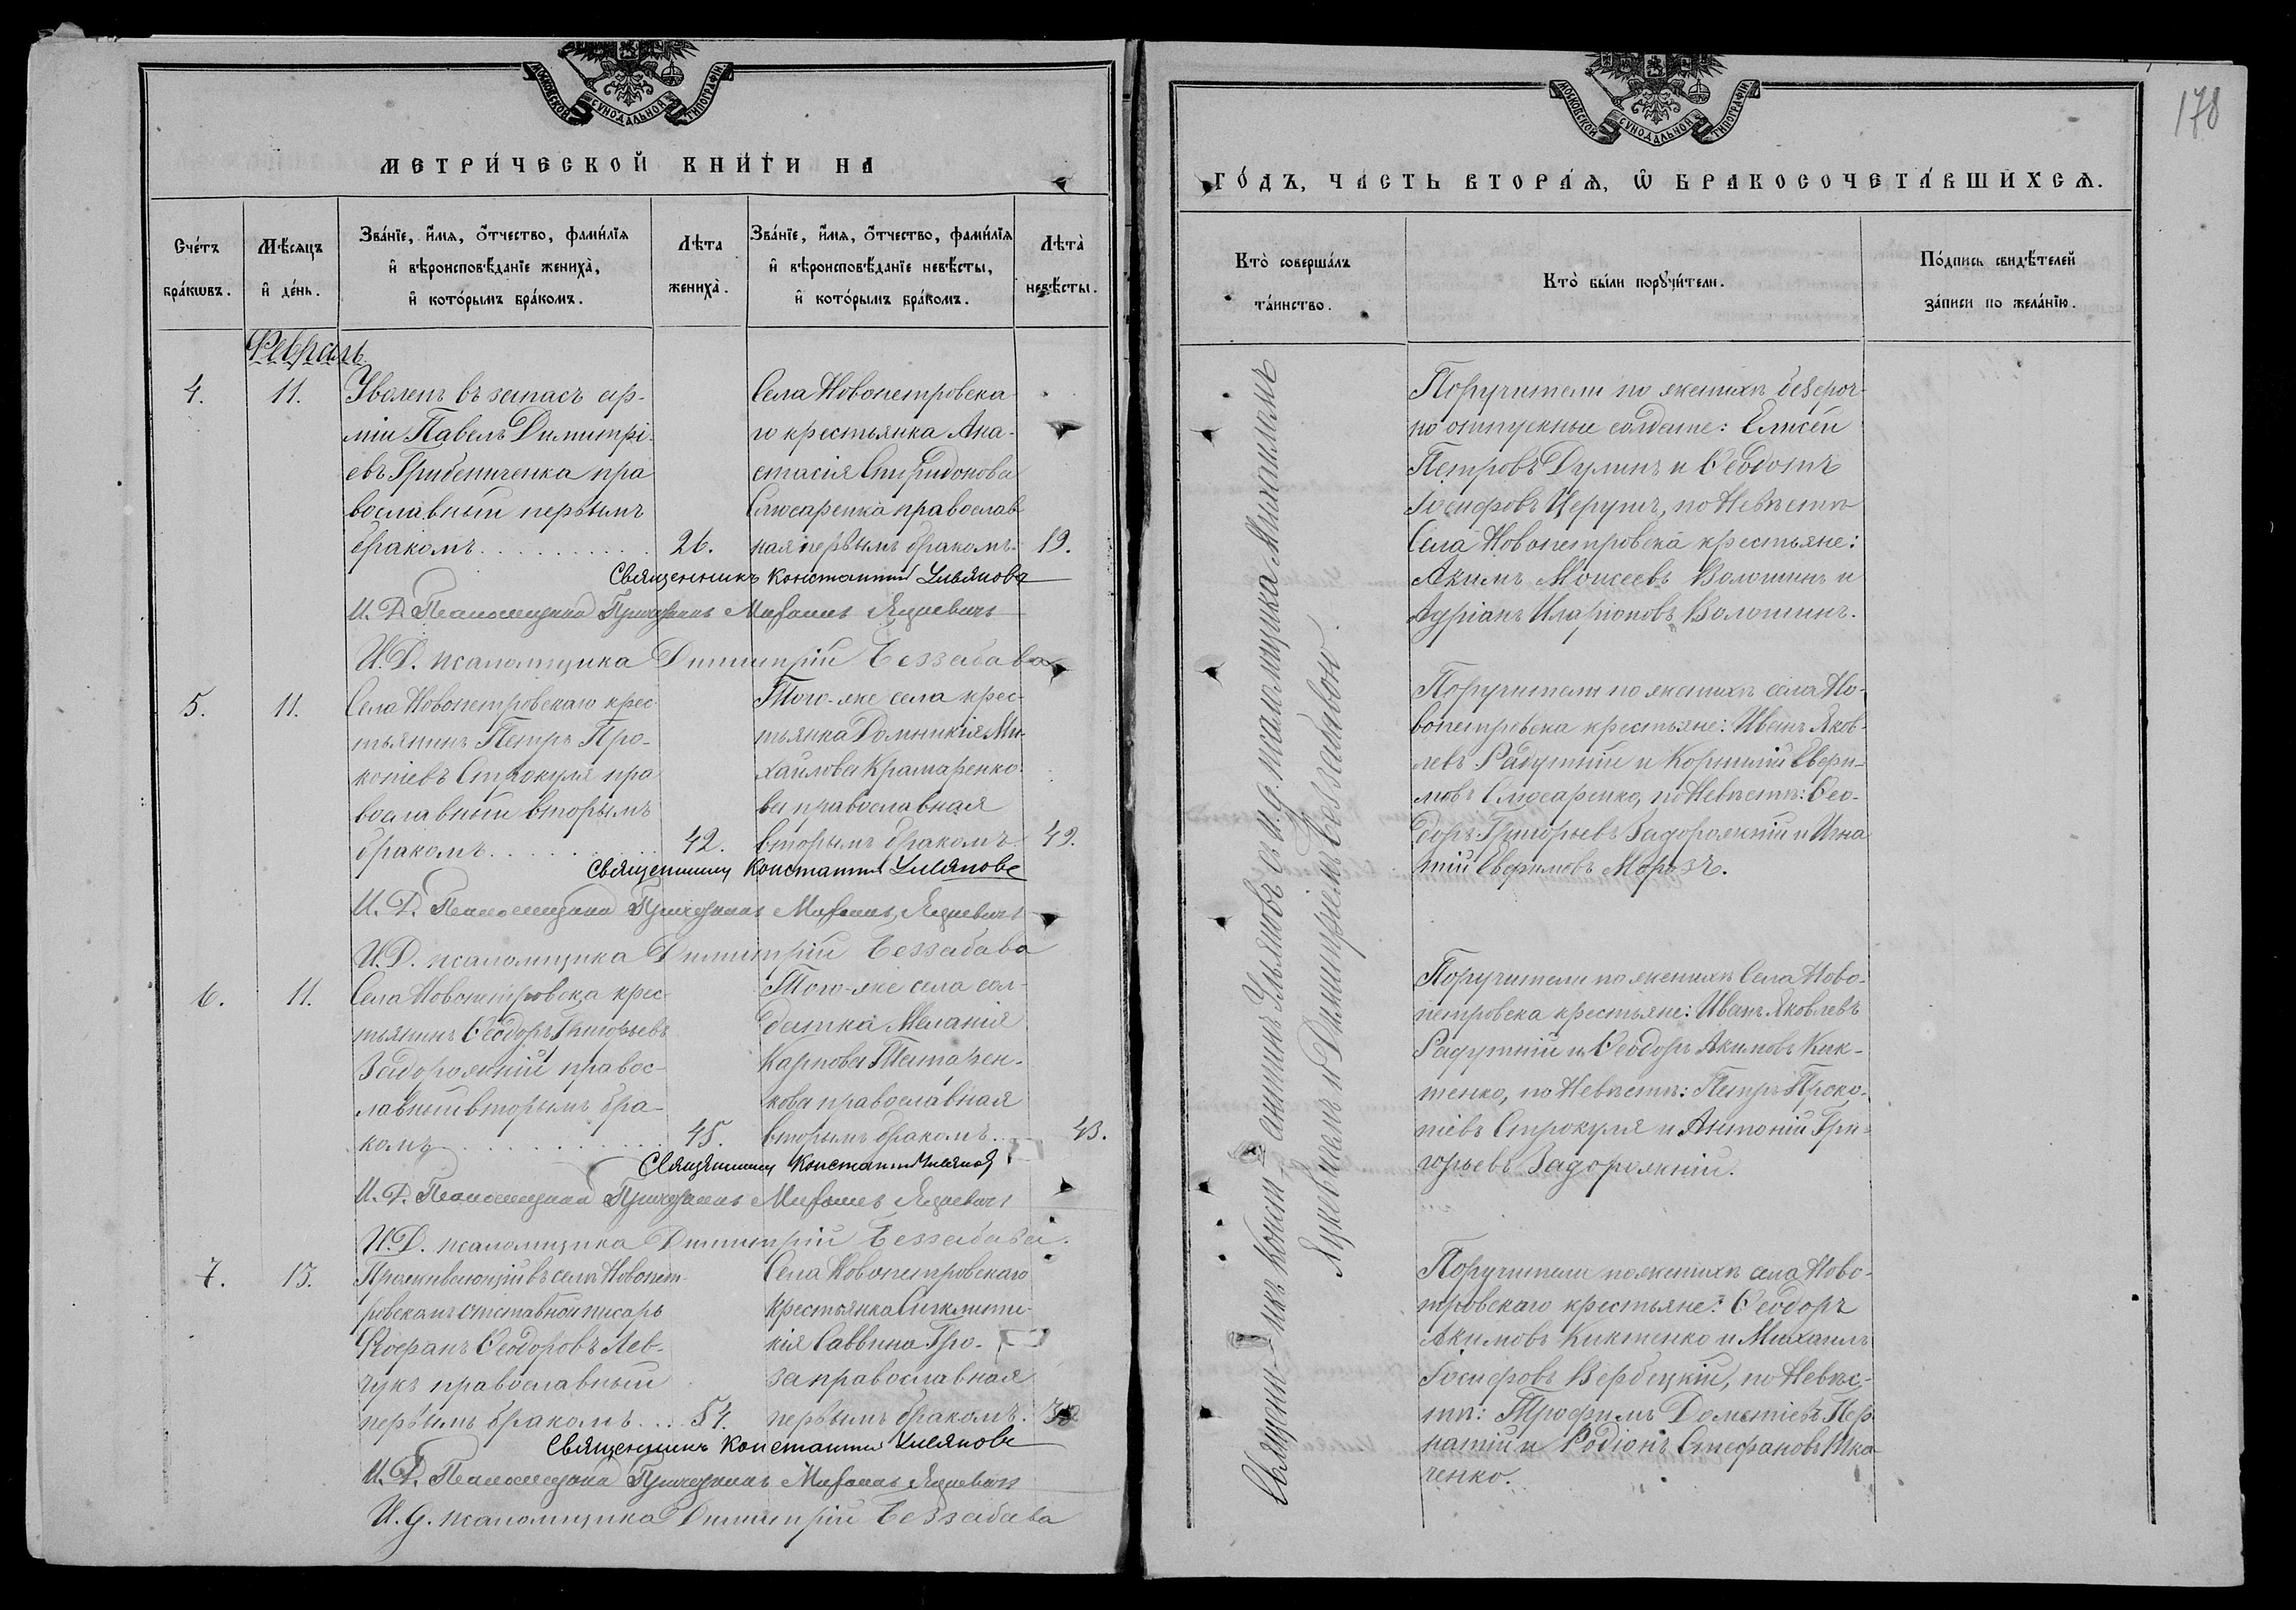 МОСКОВСКОЙ СѴНОДАЛЬНОЙ ТИПОГРАФІИ.
МЕТРИ́ЧЕСКОЙ КНИ́ГИ НА
Сче́тъ бра́кѡвъ.
Мѣ́сяцъ и҆ де́нь.
Зва́нїе, и҆́мѧ, ѻ҆́тчество, фами́лїѧ
и҆ вѣроисповѣ́данїе жениха̀,
и҆ кото́рымъ бра́комъ.
Лѣ́та жениха̀.
Зва́нїе, и҆́мѧ, ѻ҆́тчество, фами́лїѧ
и҆ вѣроисповѣ́данїе невѣ́сты,
и҆ кото́рымъ бра́комъ.
Лѣ́та невѣ́сты.
Февраль
4. 11.
Уволен въ запасъ ар-
міи Павелъ Димитрі-
евъ Гребениченка пра
вославный первымъ
бракомъ. 26.
Села Новопетровска
го крестьянка Ана-
стасія Спиридонова
Слюсаренка православ
ная первымъ бракомъ. 19.
Священникъ Константин Ульяновъ
И. Д. Псаломщика Михаилъ Яцкевичъ
И. Д. псаломщика Димитрій Беззабава
5. 11.
Села Новопетровскаго крес-
тьянинъ Петръ Про-
копіевъ Строкуля пра
вославный вторымъ
бракомъ. 42.
Того-же села крес-
тьянка Домникія Ми-
хайлова Крамаренко-
ва православная
вторымъ бракомъ. 42.
Священникъ Константин Ульяновъ
И. Д. Псаломщика Михаилъ Яцкевичъ
И. Д. псаломщика Димитрій Беззабава
6. 11.
Села Новопетровска крес-
тьянинъ Ѳеодоръ Григорьевъ
Задорожній правос-
лавный вторымъ бра-
комъ 45.
Того-же села сол-
датка Меланія
Карпова Титарен-
кова православная
вторымъ бракомъ. 43.
Священникъ Константин Ульянов
И. Д. Псаломщика Михаилъ Яцкевичъ
И. Д. псаломщика Димитрій Беззабава.
7. 15.
Проживающій въ селѣ Новопет-
ровскомъ отставной писарь
Ѳеофанъ Ѳеодоровъ Лев-
чукъ православный
первымъ бракомъ... 54.
Села Новопетровскаго
крестьянка Синклити-
кія Саввина Гро-
за православная
первымъ бракомъ.
Священникъ Константин Ульяновъ
И. Д. Псаломщика Михаилъ Яцкевичъ
И. д. псаломщика Димитрій Беззабава
178
МОСКОВСКОЙ СѴНОДАЛЬНОЙ ТИПОГРАФІИ.
ГО́ДЪ, ЧА́СТЬ ВТОРА́Ѧ, Ѿ БРАКОСОЧЕТА́ВШИХСѦ.
Кто̀ соверша́лъ та́инство.
Кто̀ бы́ли порꙋчи́тели.
По́дпись свидѣ́телей за́писи по жела́нїю.
Священникъ Константинъ Ульяновъ съ и. д. псаломщика Михаиломъ
Яцкевичемъ и Димитріемъ Беззабавою.
Поручители по женихѣ безсроч-
но отпускные солдаты: Елисей
Петровъ Дулинъ и Ѳеодотъ
Іосифовъ Церунъ, по Невѣстѣ
Села Новопетровска крестьяне:
Акимъ Моисеевъ Волошинъ и
Адріанъ Иларіоновъ Волошинъ.
Поручители по женихѣ села Но-
вопетровска крестьяне: Иванъ Яков-
левъ Радутній и Корнилій Евфи-
мовъ Слюсаренко, по Невѣстѣ: Ѳео-
доръ Григорьевъ Задорожній и Игна
тій Евфимовъ Морозъ.
Поручители по женихѣ Села Ново-
петровска крестьяне: Иванъ Яковлевъ
Радутній и Ѳеодоръ Акимовъ Кик-
тенко, по Невѣстѣ: Петръ Проко-
піевъ Строкуля и Антоній Гри-
горьевъ Задорожній.
Поручители по женихѣ села Ново-
тровскаго крестьяне: Ѳеодоръ
Акимовъ Киктенко и Михаилъ
Іосифовъ Вербецкій, по Невѣс-
тѣ: Трофимъ Дометіевъ Пер
натій и Родіонъ Стефановъ Тка
ченко.